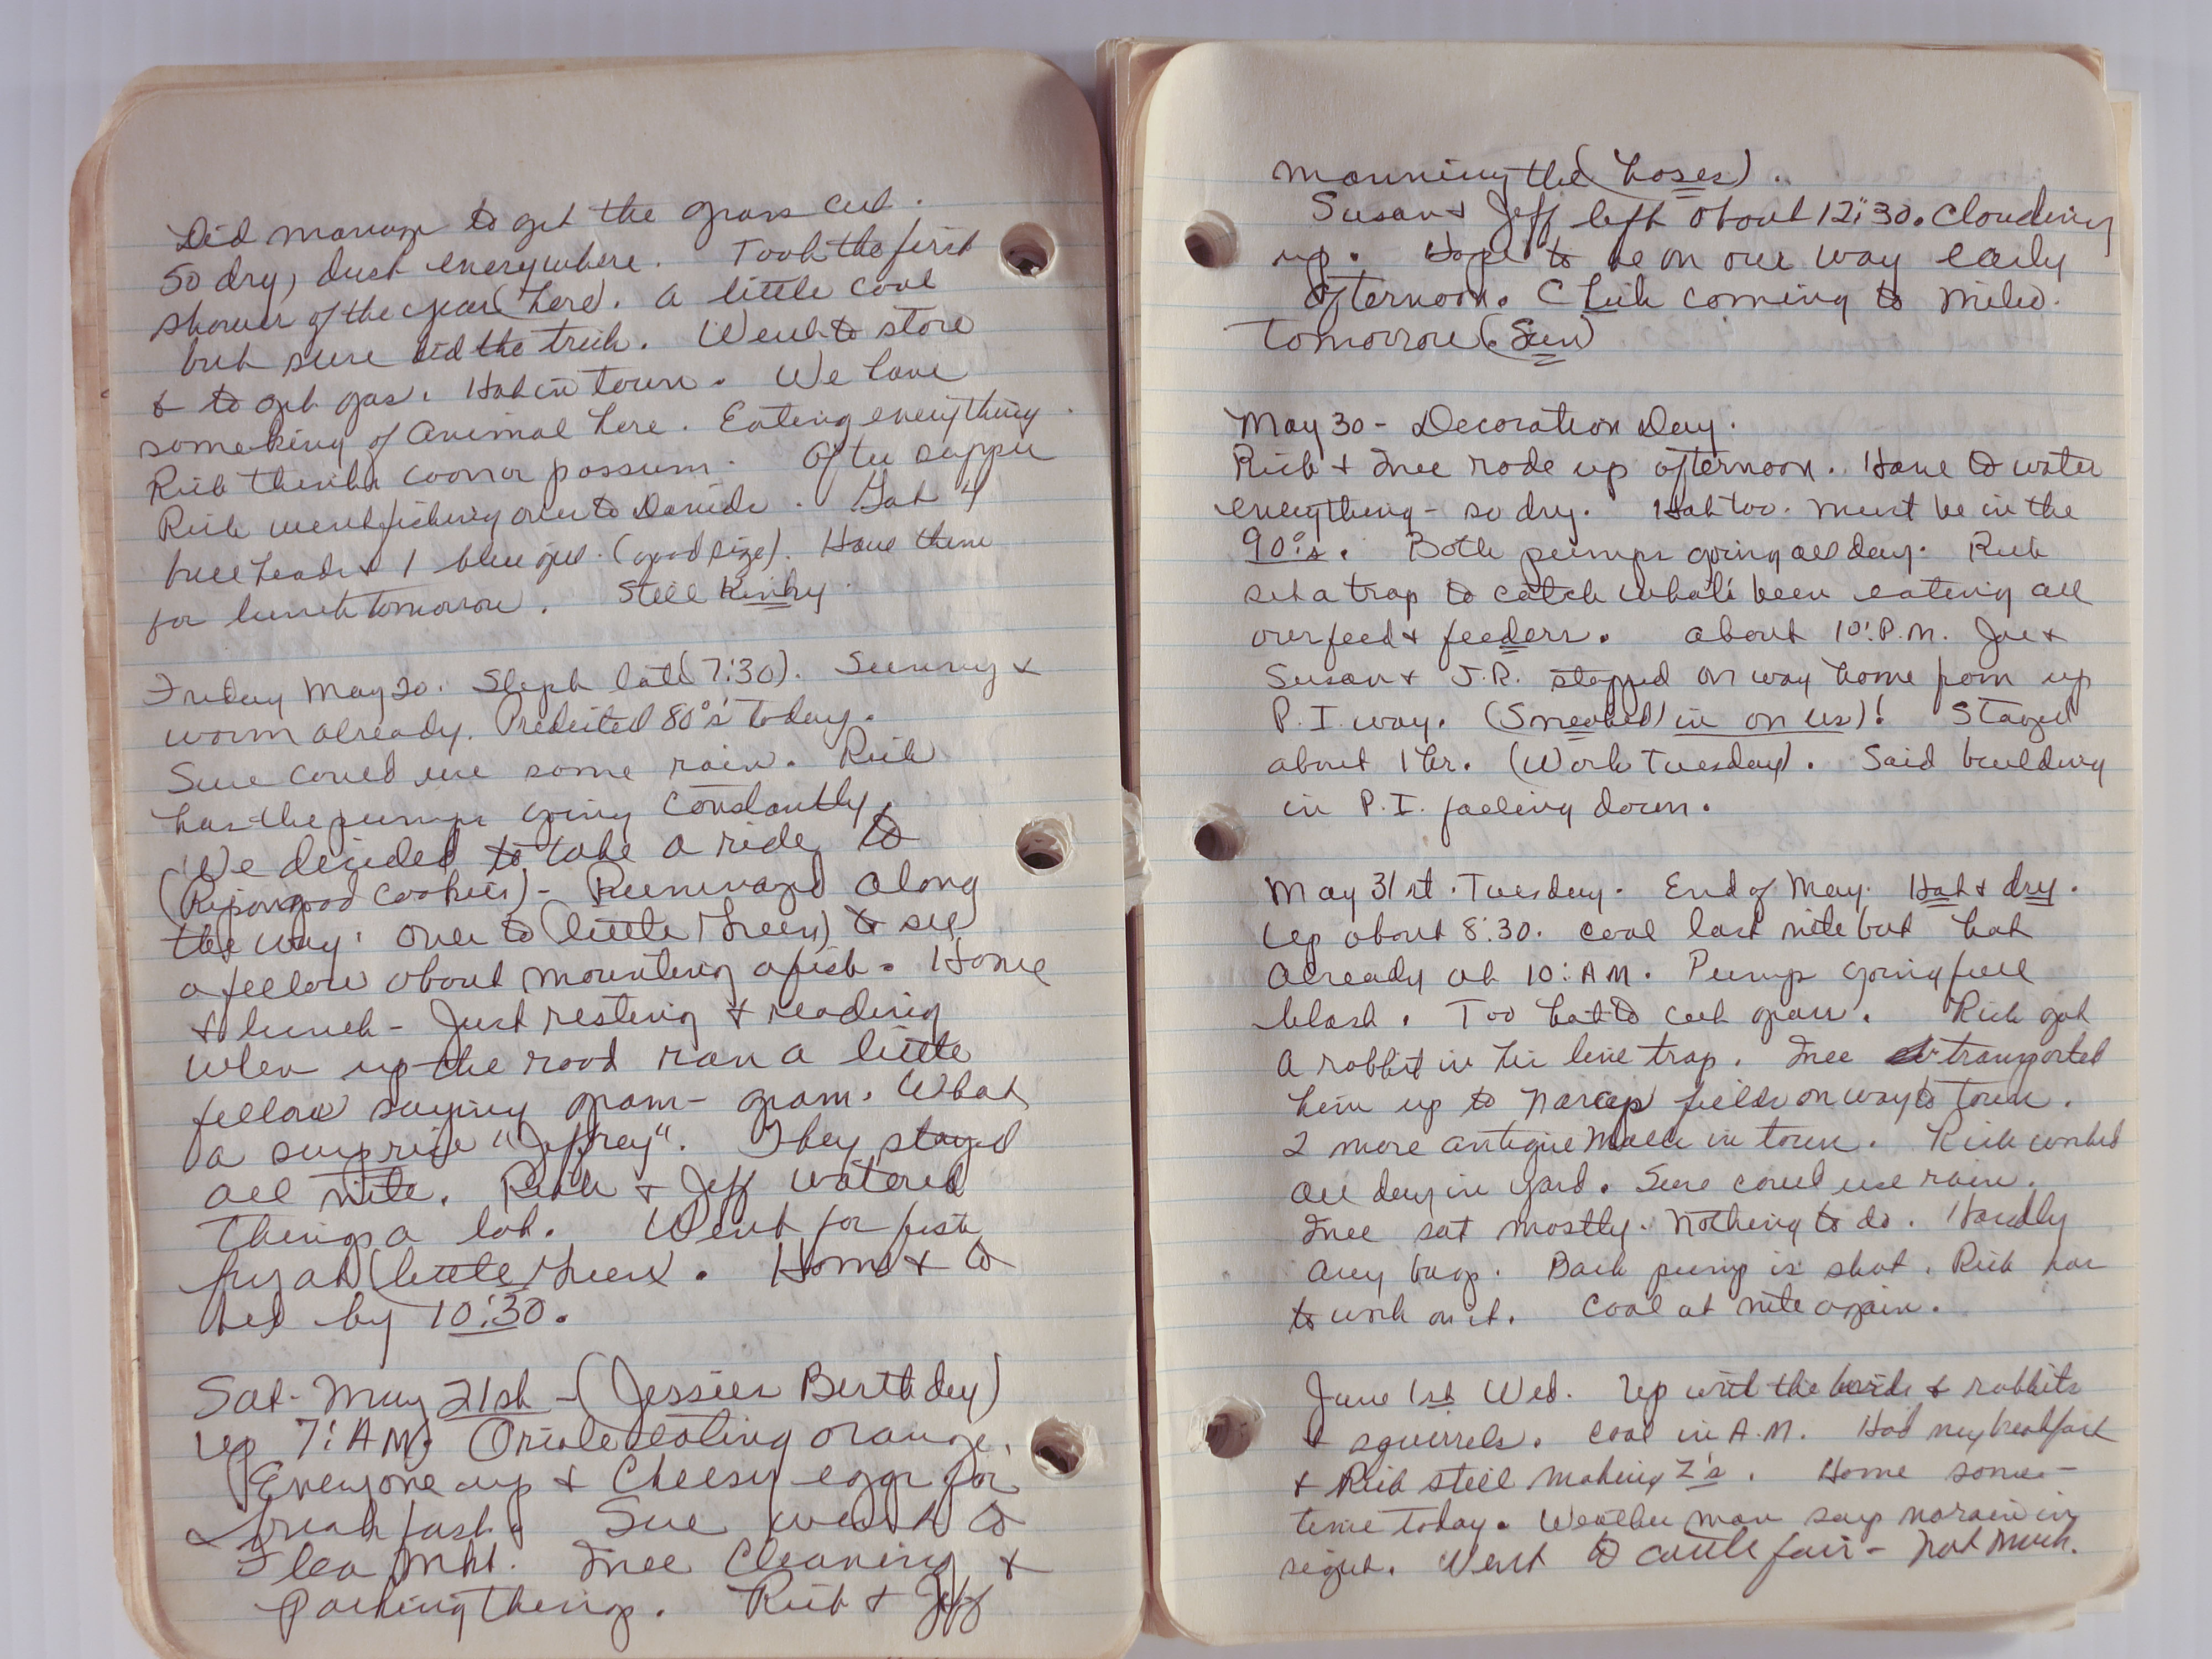 Did manage to get the grass cut.
So dry, dust everywhere. Took the first
shower of the year (here). A little cool
but sure did the trick. Went to store
& to get gas. Hot in town. We have
some king of animal here. Eating everything.
Rick thinks coon or possum. After supper
Rick went fishing over to Davids. Got 4
bullheads & 1 blue gill. (good size). Have them
for lunch tomorrow. Still Kinky.
Friday May 20. Sleph late (7:30). Sunny &
warm already. Predicted 80°'s today.
Sure could use some rain. Rick
has the pumps going constantly.
We decided to take a ride to
(Ripongood Cookies) - Rummaged along
the way. Over to (little Green) to see
a fellow about mounting a fish. Home
& lunch - Just resting & reading
when up the road ran a little
fellow saying gram - gram. What
a surprise "Jeffrey". They stayed
all nite. Rick & Jeff watered
things a lot. Went for fish
fry at (little Green). Home & to
bed by 10:30.
Sat - May 21st - (Jessies Birthday)
Up 7: AM. Oriole eating orange.
Everyone up & Cheesy eggs for
breakfast. Sue went to
Flea Mkt. Mee Cleaning &
packing things. Rick & Jeff
manning the (hoses).
Susan & Jeff left about 12:30. Clouding
up. Hope to be on our way early
afternoon. Chick coming to Milw.
tomorrow (Sun)
May 30 - Decoration Day.
Rick & Mee rode up afternoon. Have to water
everything - so dry. Hot too. Must be in the
90°'s. Both pumps going all day. Rick
set a trap to catch what's been eating all
our feed & feeders. About 10: P.M. Joe &
Susan & J.R. stopped on way home from up
P.I. way. (Sneaked in on us)! Stayed
about 1 hr. (Work Tuesday). Said building
in P.I. falling down.
May 31st. Tuesday. End of May. Hot & dry.
Up about 8:30. Cool last nite but hot
already at 10: AM. Pump going full
blast. Too hot to cut grass. Rick got
a rabbit in his live trap. Mee transported
him up to fields on way to town.
2 more antique Malls in town. Rick worked
all day in yard. Sure could use rain.
Mee sat mostly. Nothing to do. Hardly
any bugs. Back pump is shot. Rick has
to work on it. Cool at nite again.
June 1st Wed. Up with the birds & rabbits
& squirrels. Cool in A.M. Had my breakfast
& Rick still making Z's. Home some-
time today. Weather man say no rain in
sight. Went to cattle fair - not much.